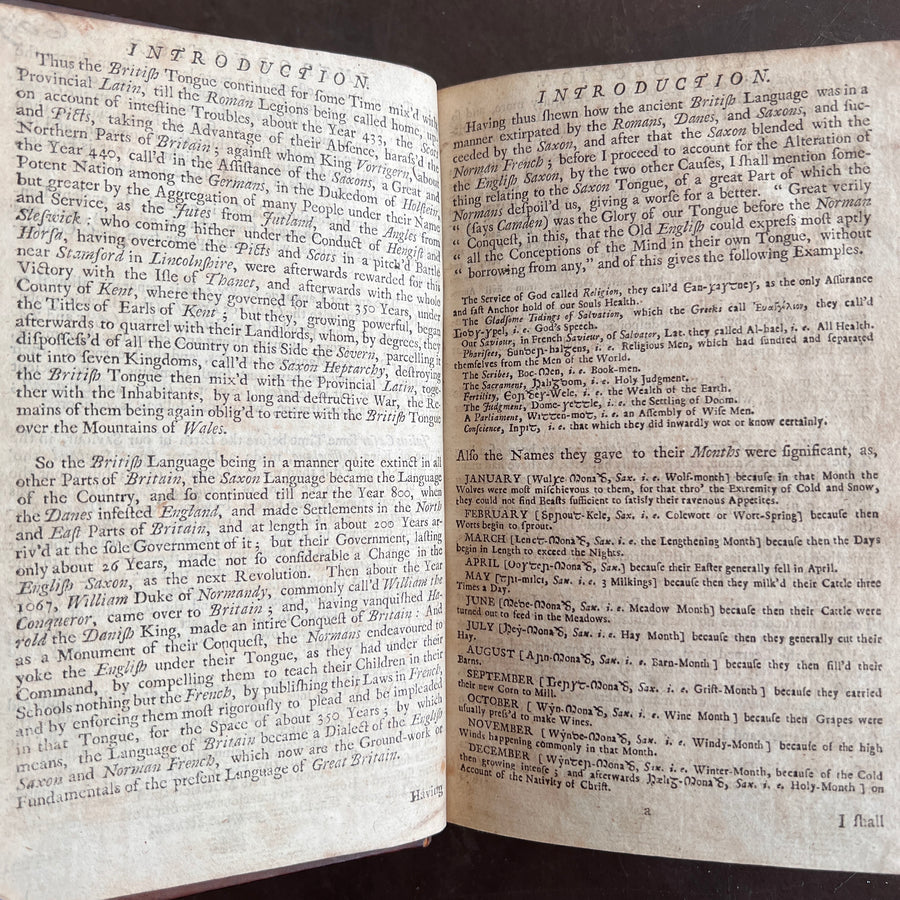 INTRODUCTION.
Thus the Britiſh Tongue continued for ſome Time mix'd with
Provincial Latin, till the Roman Legions being called home, up-
on account of inteſtine Troubles, about the Year 433, the Scots
and Picts, taking the Advantage of their Abſence, haraſs'd the
Northern Parts of Britain; againſt whom King Vortigern, about
the Year 440, call'd in the Aſſiſtance of the Saxons, a Great and
Potent Nation among the Germans, in the Dukedom of Holſtein,
but greater by the Aggregation of many People under their Name
and Service, as the Jutes from Jutland, and the Angles from
Sleſwick: who coming hither under the Conduct of Hengiſt and
Horſa, having overcome the Picts and Scots in a pitch'd Battle
near Stamford in Lincolnſhire, were afterwards rewarded for this
Victory with the Iſle of Thanet, and afterwards with the whole
County of Kent, where they governed for about 350 Years, under
the Titles of Earls of Kent; but they, growing powerful, began
afterwards to quarrel with their Landlords, whom, by degrees, they
diſpoſſeſs'd of all the Country on this Side the Severn, parcelling it
out into ſeven Kingdoms, call'd the Saxon Heptarchy, deſtroying
the Britiſh Tongue then mix'd with the Provincial Latin, toge-
ther with the Inhabitants, by a long and deſtructive War, the Re-
mains of them being again oblig'd to retire with the Britiſh Tongue
over the Mountains of Wales.
So the Britiſh Language being in a manner quite extinct in all
other Parts of Britain, the Saxon Language became the Language
of the Country, and ſo continued till near the Year 800, when
the Danes infeſted England, and made Settlements in the North
and Eaſt Parts of Britain, and at length in about 200 Years ar-
riv'd at the ſole Government of it; but their Government, laſting
only about 26 Years, made not ſo conſiderable a Change in the
Engliſh Saxon, as the next Revolution. Then about the Year
1067, William Duke of Normandy, commonly call'd William the
Conqueror, came over to Britain; and, having vanquiſhed Ha-
rold the Daniſh King, made an intire Conqueſt of Britain: And
as a Monument of their Conqueſt, the Normans endeavoured to
yoke the Engliſh under their Tongue, as they had under their
Command, by compelling them to teach their Children in their
Schools nothing but the French, by publiſhing their Laws in French,
and by enforcing them moſt rigorouſly to plead and be impleaded
in that Tongue, for the Space of about 350 Years; by which
means, the Language of Britain became a Dialect of the Engliſh
Saxon and Norman French, which now are the Ground-work or
Fundamentals of the preſent Language of Great Britain.
Having
INTRODUCTION.
Having thus ſhewn how the ancient Britiſh Language was in a
manner extirpated by the Romans, Danes, and Saxons, and ſuc-
ceeded by the Saxon, and after that the Saxon blended with the
Norman French; before I proceed to account for the Alteration of
the Engliſh Saxon, by the two other Cauſes, I ſhall mention ſome-
thing relating to the Saxon Tongue, of a great Part of which the
Normans deſpoil'd us, giving a worſe for a better. "Great verily
" (ſays Camden) was the Glory of our Tongue before the Norman
" Conqueſt, in this, that the Old Engliſh could expreſs moſt aptly
" all the Conceptions of the Mind in their own Tongue, without
" borrowing from any," and of this gives the following Examples.
The Service of God called Religion, they call'd Ean-ꝼaꞅꞇneꞅ, as the only Aſſurance
and faſt Anchor hold of our Souls Health.
The Gladſome Tidings of Salvation, which the Greeks call Ἐυαγγέλιον, they call'd
Loꝺꞅ-ꞅpel, i. e. God's Speech.
Our Saviour, in French Sauveur, of Salvator, Lat. they called Al-hael, i. e. All Health.
Phariſees, ꞅunꝺeꞃ-halgenꞅ, i. e. Religious Men, which had ſundred and ſeparated
themſelves from the Men of the World.
The Scribes, Boc-Men, i. e. Book-men.
The Sacrament, i. e. Holy Judgment.
Fertility, Eoꞃꝺeꞅ-Wele, i. e. the Wealth of the Earth.
The Judgment, Dome-ꞅeꞇꞇle, i. e. the Settling of Doom.
A Parliament, Wiꞇꞇen-moꞇ, i. e. an Aſſembly of Wiſe Men.
Conſcience, Inƿiꞇ, i. e. that which they did inwardly wot or know certainly.
Alſo the Names they gave to their Months were ſignificant, as,
JANUARY [Wulꝼe Monað, Sax. i. e. Wolf-month] becauſe in that Month the
Wolves were moſt miſchievous to them, for that thro' the Extremity of Cold and Snow,
they could not find Beaſts ſufficient to ſatisfy their ravenous Appetites.
FEBRUARY [Sꞃnouꞇ-Kele, Sax. i. e. Colewort or Wort-Spring] becauſe then
Worts begin to ſprout.
MARCH [Lencꞇ-Monað, Sax. i. e. the Lengthening Month] becauſe then the Days
begin in Length to exceed the Nights.
APRIL [Ooꞅꞇeꞃ-Monað, Sax.] becauſe their Eaſter generally fell in April.
MAY [ꞇꞃi-milci, Sax. i. e. 3 Milkings] becauſe then they milk'd their Cattle three
Times a Day.
JUNE [Mede-Monað, Sax. i. e. Meadow Month] becauſe then their Cattle were
turned out to feed in the Meadows.
JULY [Hey-Monað, Sax. i. e. Hay Month] becauſe then they generally cut their
Hay.
AUGUST [Aꞃn-Monað, Sax. i. e. Barn-Month] becauſe they then fill'd their
Barns.
SEPTEMBER [Geꞃyꞅꞇ-Monað, Sax. i. e. Griſt-Month] becauſe they carried
their new Corn to Mill.
OCTOBER [Wẏn-Monað, Sax. i. e. Wine Month] becauſe then Grapes were
uſually preſs'd to make Wines.
NOVEMBER [Wẏnde-Monað, Sax. i. e. Windy-Month] becauſe of the high
Winds happening commonly in that Month.
DECEMBER [Wẏnꞇeꞃ-Monað, Sax. i. e. Winter-Month, becauſe of the Cold
then growing intenſe; and afterwards Hælig-Monað, Sax. i. e. Holy-Month] on
Account of the Nativity of Chriſt.
a
I ſhall